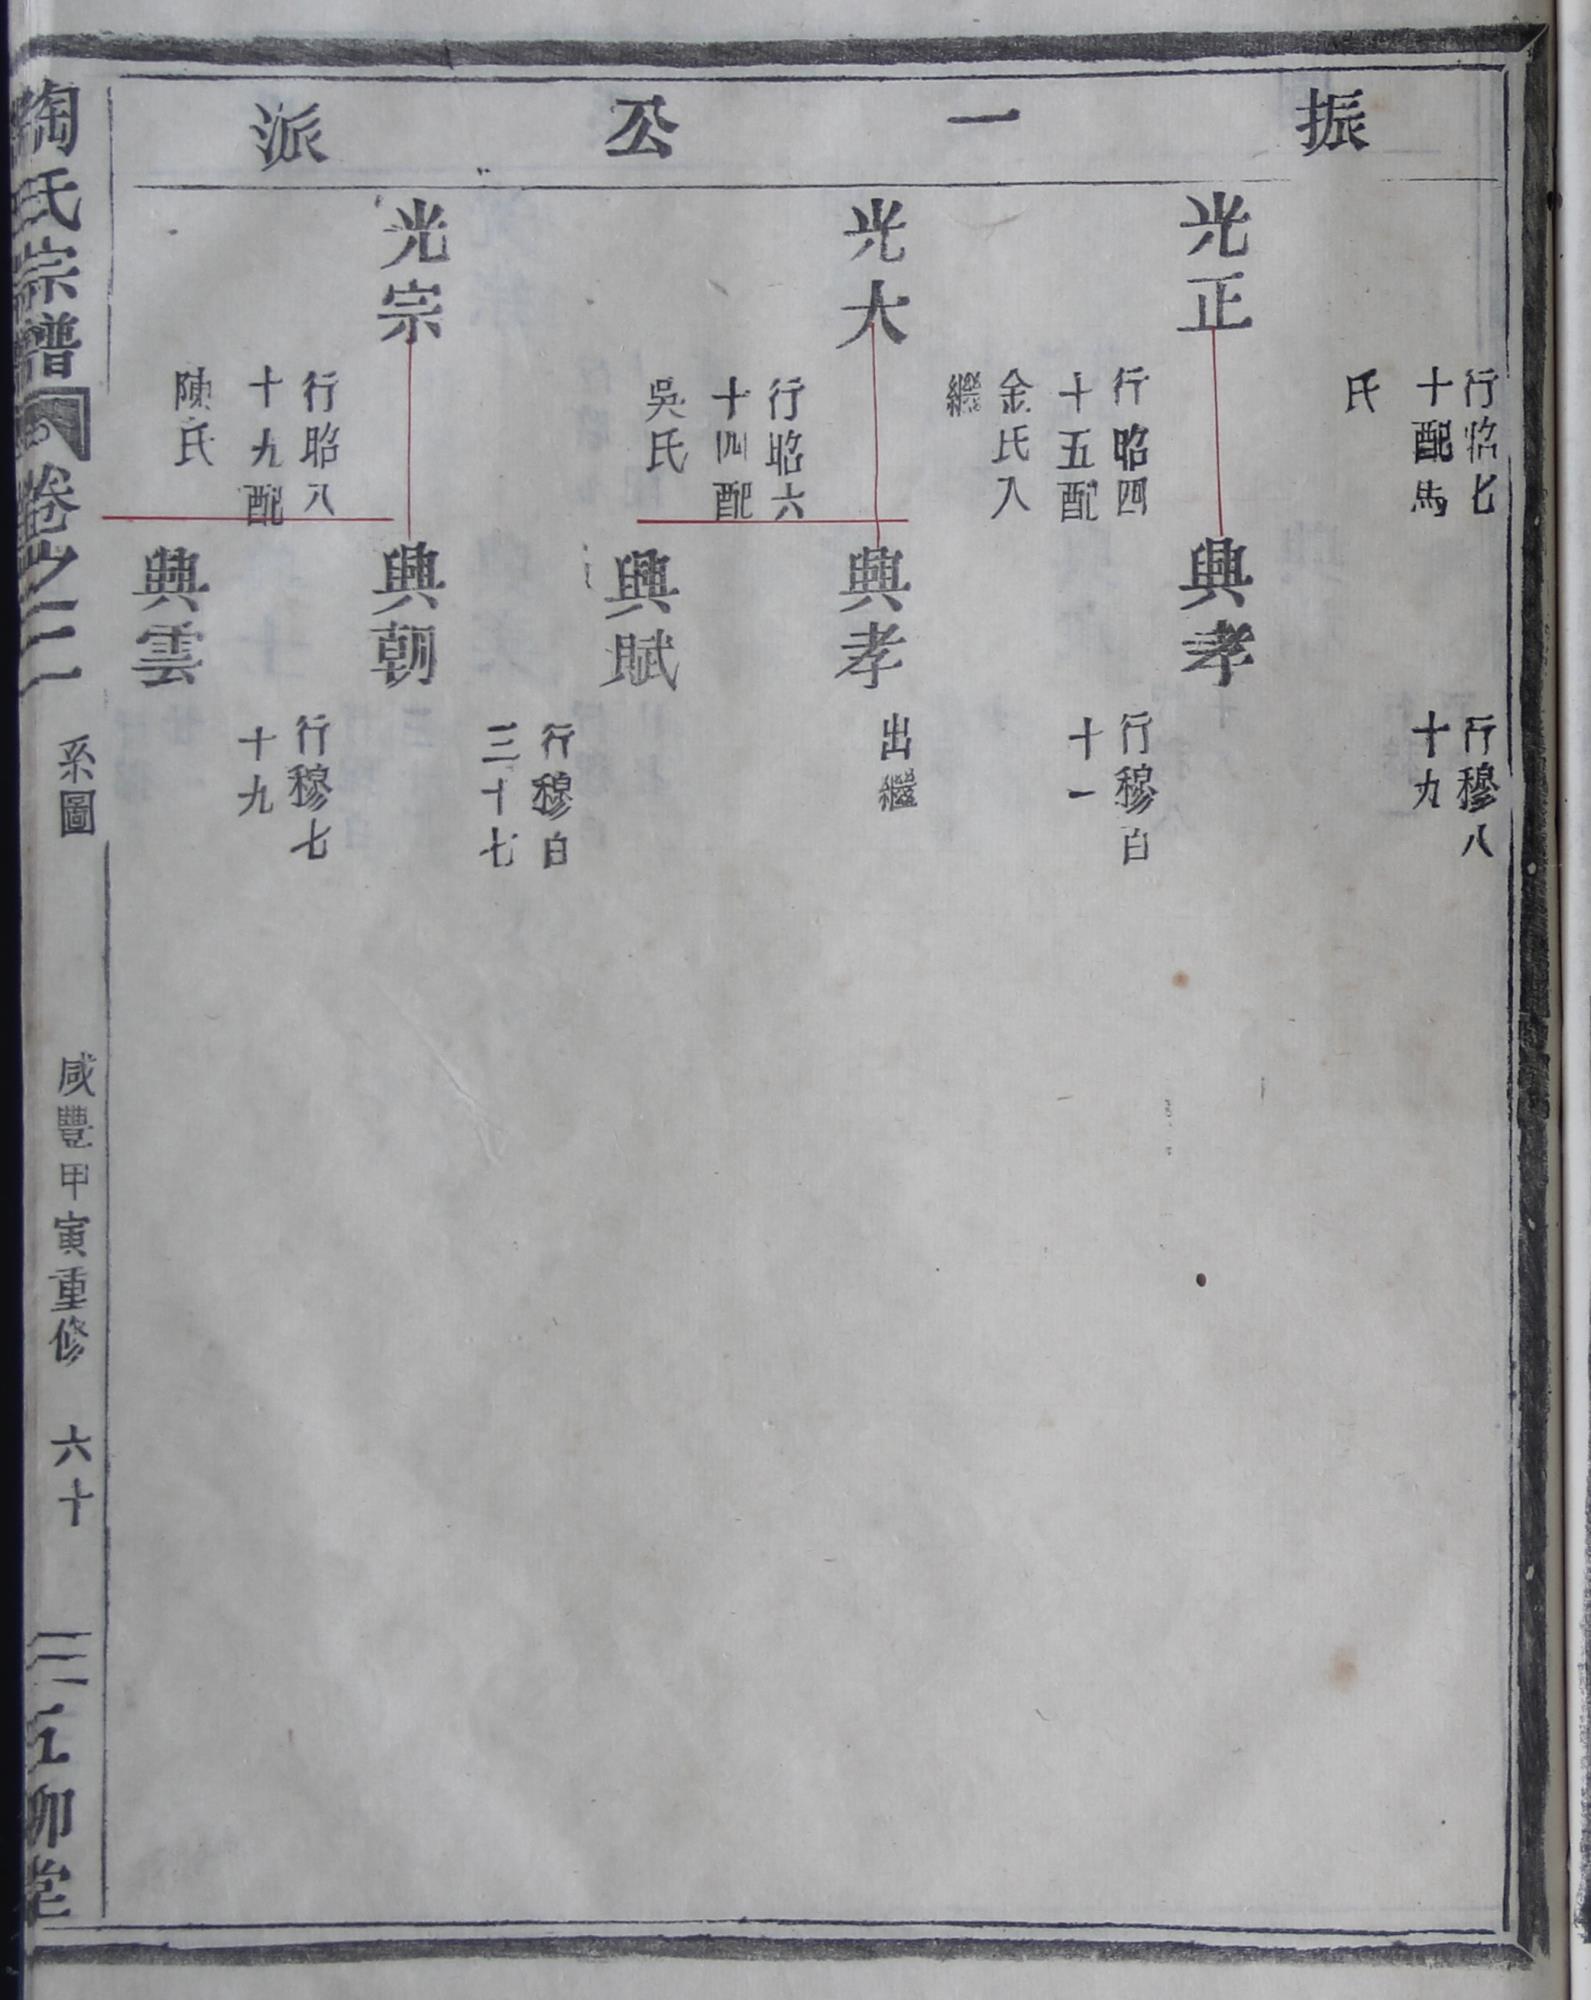 振一公派
行昭七
十配馬
氏
光正
行昭四
十五配
金氏入
繼
光大
行昭六
十四配
吳氏
光宗
行昭八
十九配
陳氏
行穆八
十九
興孝
行穆白
十一
興孝
出繼
興賦
行穆白
三十七
興朝
行穆七
十九
興雲
陶氏宗譜
卷之二
系圖
咸豐甲寅重修
六十
五柳堂